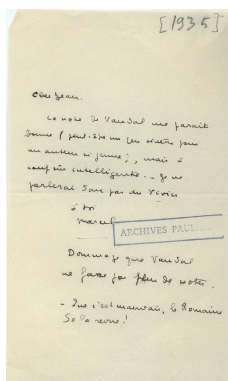 [1935]
Cher Jean.
La note de Vandal me paraît
bonne (peut-être un peu sévère pour
un auteur si jeune), mais à
coup sûr intelligente. - Je ne
parlerai donc pas du Vivier
à toi
marcel
ARCHIVES PAUL
Dommage que Vandal
ne fasse pas plus de notes.
- Que c'est mauvais, le Romains
de la revue!